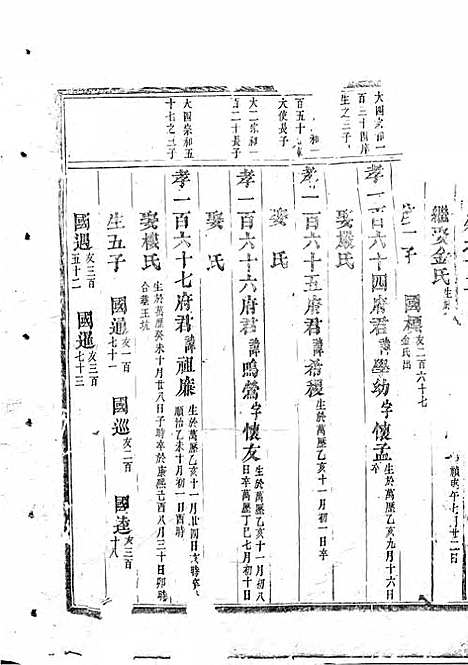 繼娶金氏
國標亥二百六十七金氏出
大四宗和一百三十四府生之三子
孝一百六十四府君諱學幼字懷孟生於萬歷乙亥九月十六日卒
娶樓氏
孝一百六十五府君諱希稷生於萬歷乙亥十一月初一日卒
娶 氏
大二宗和一百二十長子
孝一百六十六府君諱鳴鶯字懷友生於萬歷乙亥十一月初八日卒萬歷丁巳七月初十日
娶 氏
大四宗和五十七之三子
孝一百六十七府君諱祖廉生於萬歷乙亥十一月廿四日亥時卒順治乙未十月初一日酉時
娶樓氏生於萬歷癸未十月廿八日子時卒於康熙己酉八月三十日卯時合葬王坑
生五子 國通亥一百七十一 國巡亥二百 國逵亥三百十八
國遇亥三百五十二 國進亥三百七十三